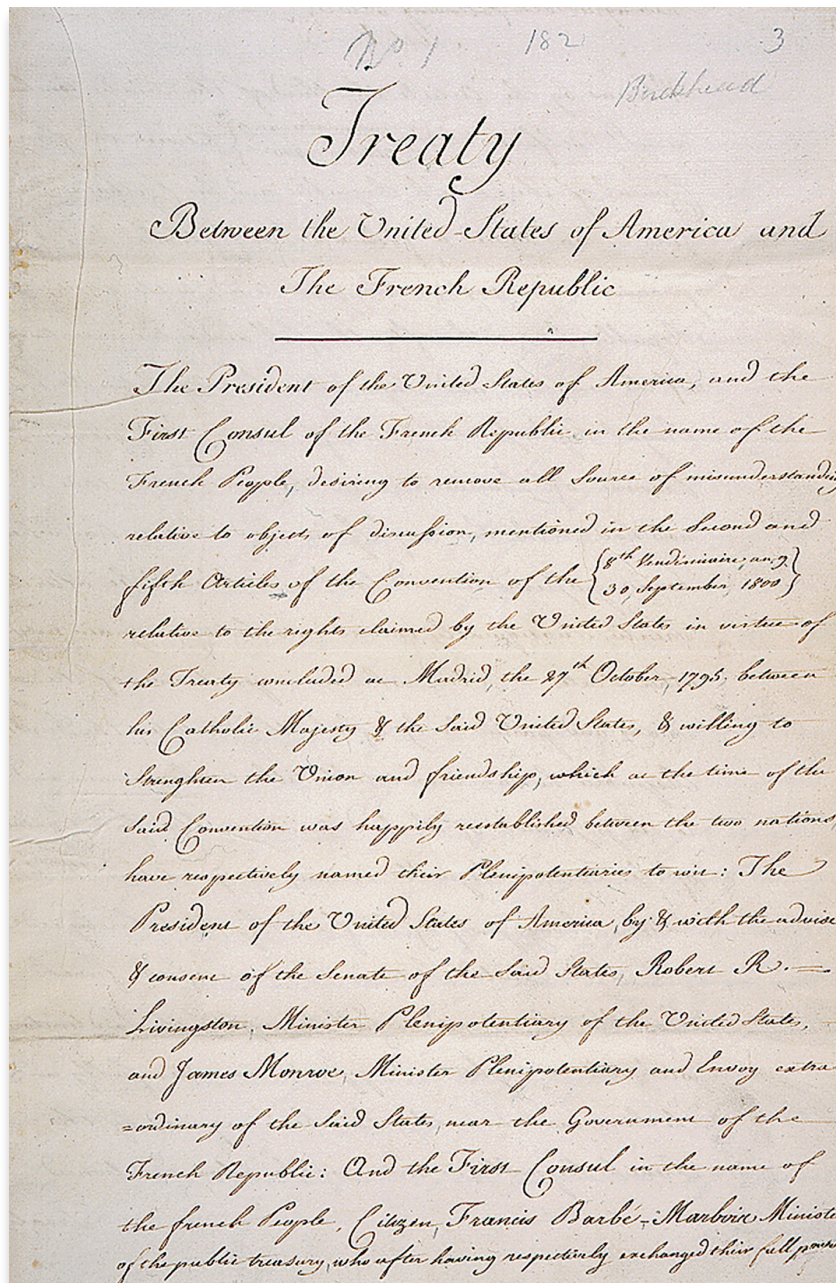 No 1 182 3
Birckhead
Treaty
Between the United States of America and
The French Republic
The President of the United States of America, and the
First Consul of the French Republic in the name of the
French People, desiring to remove all Source of misunderstanding
relative to objects of discussion, mentioned in the Second and
fifth Articles of the Convention of the {8th Vendémiaire, an 9
30, September, 1800}
relative to the rights claimed by the United States in virtue of
the Treaty concluded at Madrid, the 27th October, 1795, between
his Catholic Majesty & the Said United States, & willing to
Strenghten the Union and friendship, which at the time of the
Said Convention was happily reestablished between the two nations,
have respectively named their Plenipotentiaries to wit: The
President of the United States of America, by & with the advise
& consent of the Senate of the Said States, Robert R. =
Livingston, Minister Plenipotentiary of the United States, =
and James Monroe, Minister Plenipotentiary and Envoy extra
=ordinary of the Said States, near the Government of the
French Republic: And the First Consul in the name of
the french People, Citizen, Francis Barbé-Marbois Minister
of the public treasury, who after having respectively exchanged their full powers